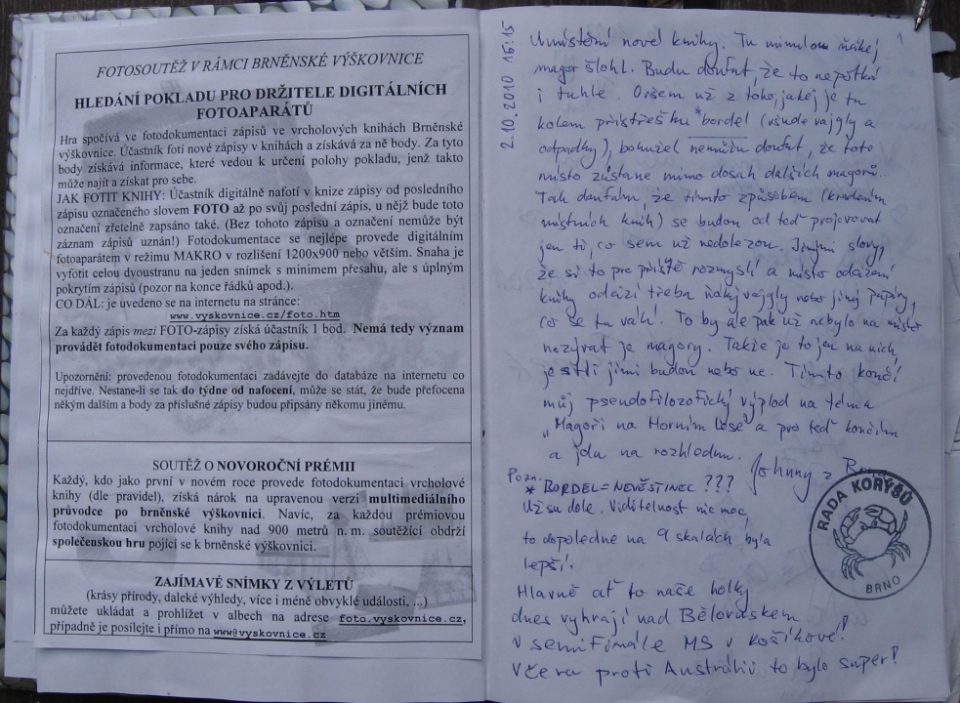 FOTOSOUTĚŽ V RÁMCI BRNĚNSKÉ VÝŠKOVNICE
HLEDÁNÍ POKLADU PRO DRŽITELE DIGITÁLNÍCH
FOTOAPARÁTŮ
Hra spočívá ve fotodokumentaci zápisů ve vrcholových knihách Brněnské
výškovnice. Účastník fotí nové zápisy v knihách a získává za ně body. Za tyto
body získává informace, které vedou k určení polohy pokladu, jenž takto
může najít a získat pro sebe.
JAK FOTIT KNIHU: Účastník digitálně nafotí v knize zápisy od posledního
zápisu označeného slovem FOTO až po svůj poslední zápis, u nějž bude toto
označení zřetelně zapsáno také. (Bez tohoto zápisu a označení nemůže být
záznam zápisů uznán!) Fotodokumentace se nejlépe provede digitálním
fotoaparátem v režimu MAKRO v rozlišení 1200x900 nebo větším. Snaha je
vyfotit celou dvoustranu na jeden snímek s minimem přesahu, ale s úplným
pokrytím zápisů (pozor na konce řádků apod.).
CO DÁL: je uvedeno se na internetu na stránce:
www.vyskovnice.cz/foto.htm
Za každý zápis mezi FOTO-zápisy získá účastník 1 bod. Nemá tedy význam
provádět fotodokumentaci pouze svého zápisu.
Upozornění: provedenou fotodokumentaci zadávejte do databáze na internetu co
nejdříve. Nestane-li se tak do týdne od nafocení, může se stát, že bude přefocena
někým dalším a body za příslušné zápisy budou připsány někomu jinému.
SOUTĚŽ O NOVOROČNÍ PRÉMII
Každý, kdo jako první v novém roce provede fotodokumentaci vrcholové
knihy (dle pravidel), získá nárok na upravenou verzi multimediálního
průvodce po brněnské výškovnici. Navíc, za každou prémiovou
fotodokumentaci vrcholové knihy nad 900 metrů n. m. soutěžící obdrží
společenskou hru pojící se k brněnské výškovnici.
ZAJÍMAVÉ SNÍMKY Z VÝLETŮ
(krásy přírody, daleké výhledy, více i méně obvyklé události, ...)
můžete ukládat a prohlížet v albech na adrese foto.vyskovnice.cz,
případně je posílejte i přímo na www@vyskovnice.cz
1
2.10.2010 16:15
Umístění nové knihy. Tu minulou ňákej
magor šlohl. Budu doufat, že to nepotká
i tuhle. Ovšem už z toho, jakej je tu
kolem přístřešku *bordel (všude vajgly a
odpadky), bohužel nemůžu doufat, že toto
místo zůstane mimo dosah dalších magorů.
Tak doufám, že tímto způsobem (kradením
místních knih) se budou od teď projevovat
jen ti, co sem už nedolezou. Jinými slovy,
že si to pro příště rozmyslí a místo odcizení
knihy odcizí třeba ňáký vajgly nebo jiný papíry,
co se tu válí. To by ale pak už nebylo na místě
nazývat je magory. Takže je to jen na nich,
jestli jimi budou nebo ne. Tímto končí
můj pseudofilozofický výplod na téma
"Magoři na Horním lese" a pro teď končím
a jdu na rozhlednu. Johnny z
Pozn.
* BORDEL = NEVĚSTINEC ???
Už su dole. Viditelnost nic moc,
to dopoledne na 9 skalách byla
lepší!
Hlavně ať to naše holky
dnes vyhrají nad Běloruskem
v semifinále MS v košíkové!
Včera proti Austrálii to bylo super!
RADA KORÝŠŮ
BRNO